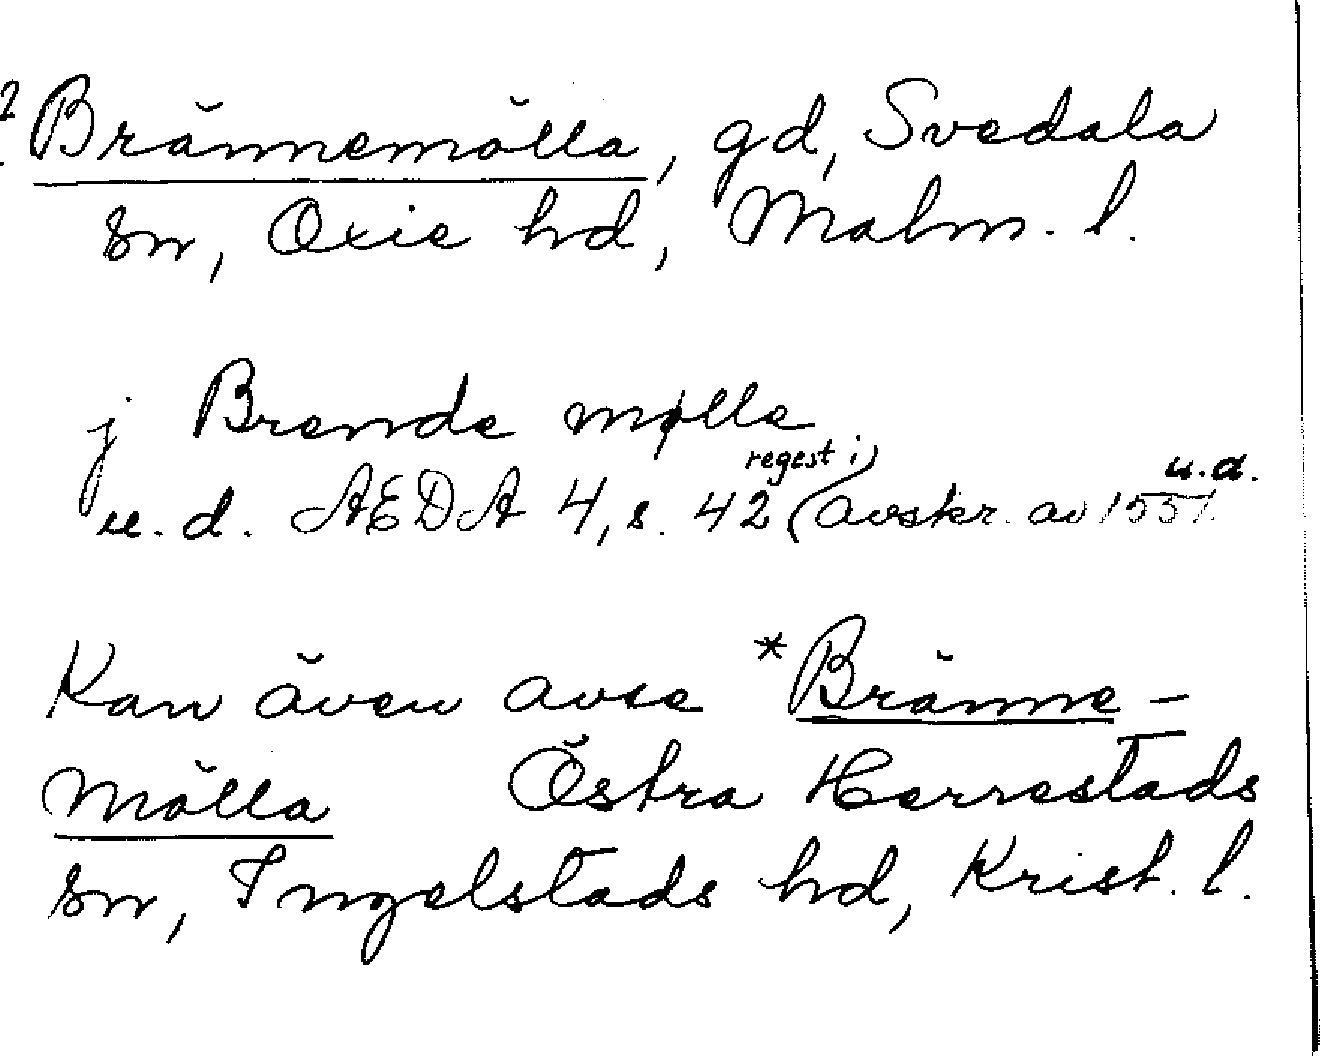 ? Brännemölla, gd, Svedala
sn, Oxie hd, Malm. l.
j Brende mølle
u.d. AEDA 4, s. 42 (regest i) avskr. av 1551 u.d.
Kan även avse *Bränne-
mölla Östra Herrestads
sn, Ingelstads hd, Krist. l.